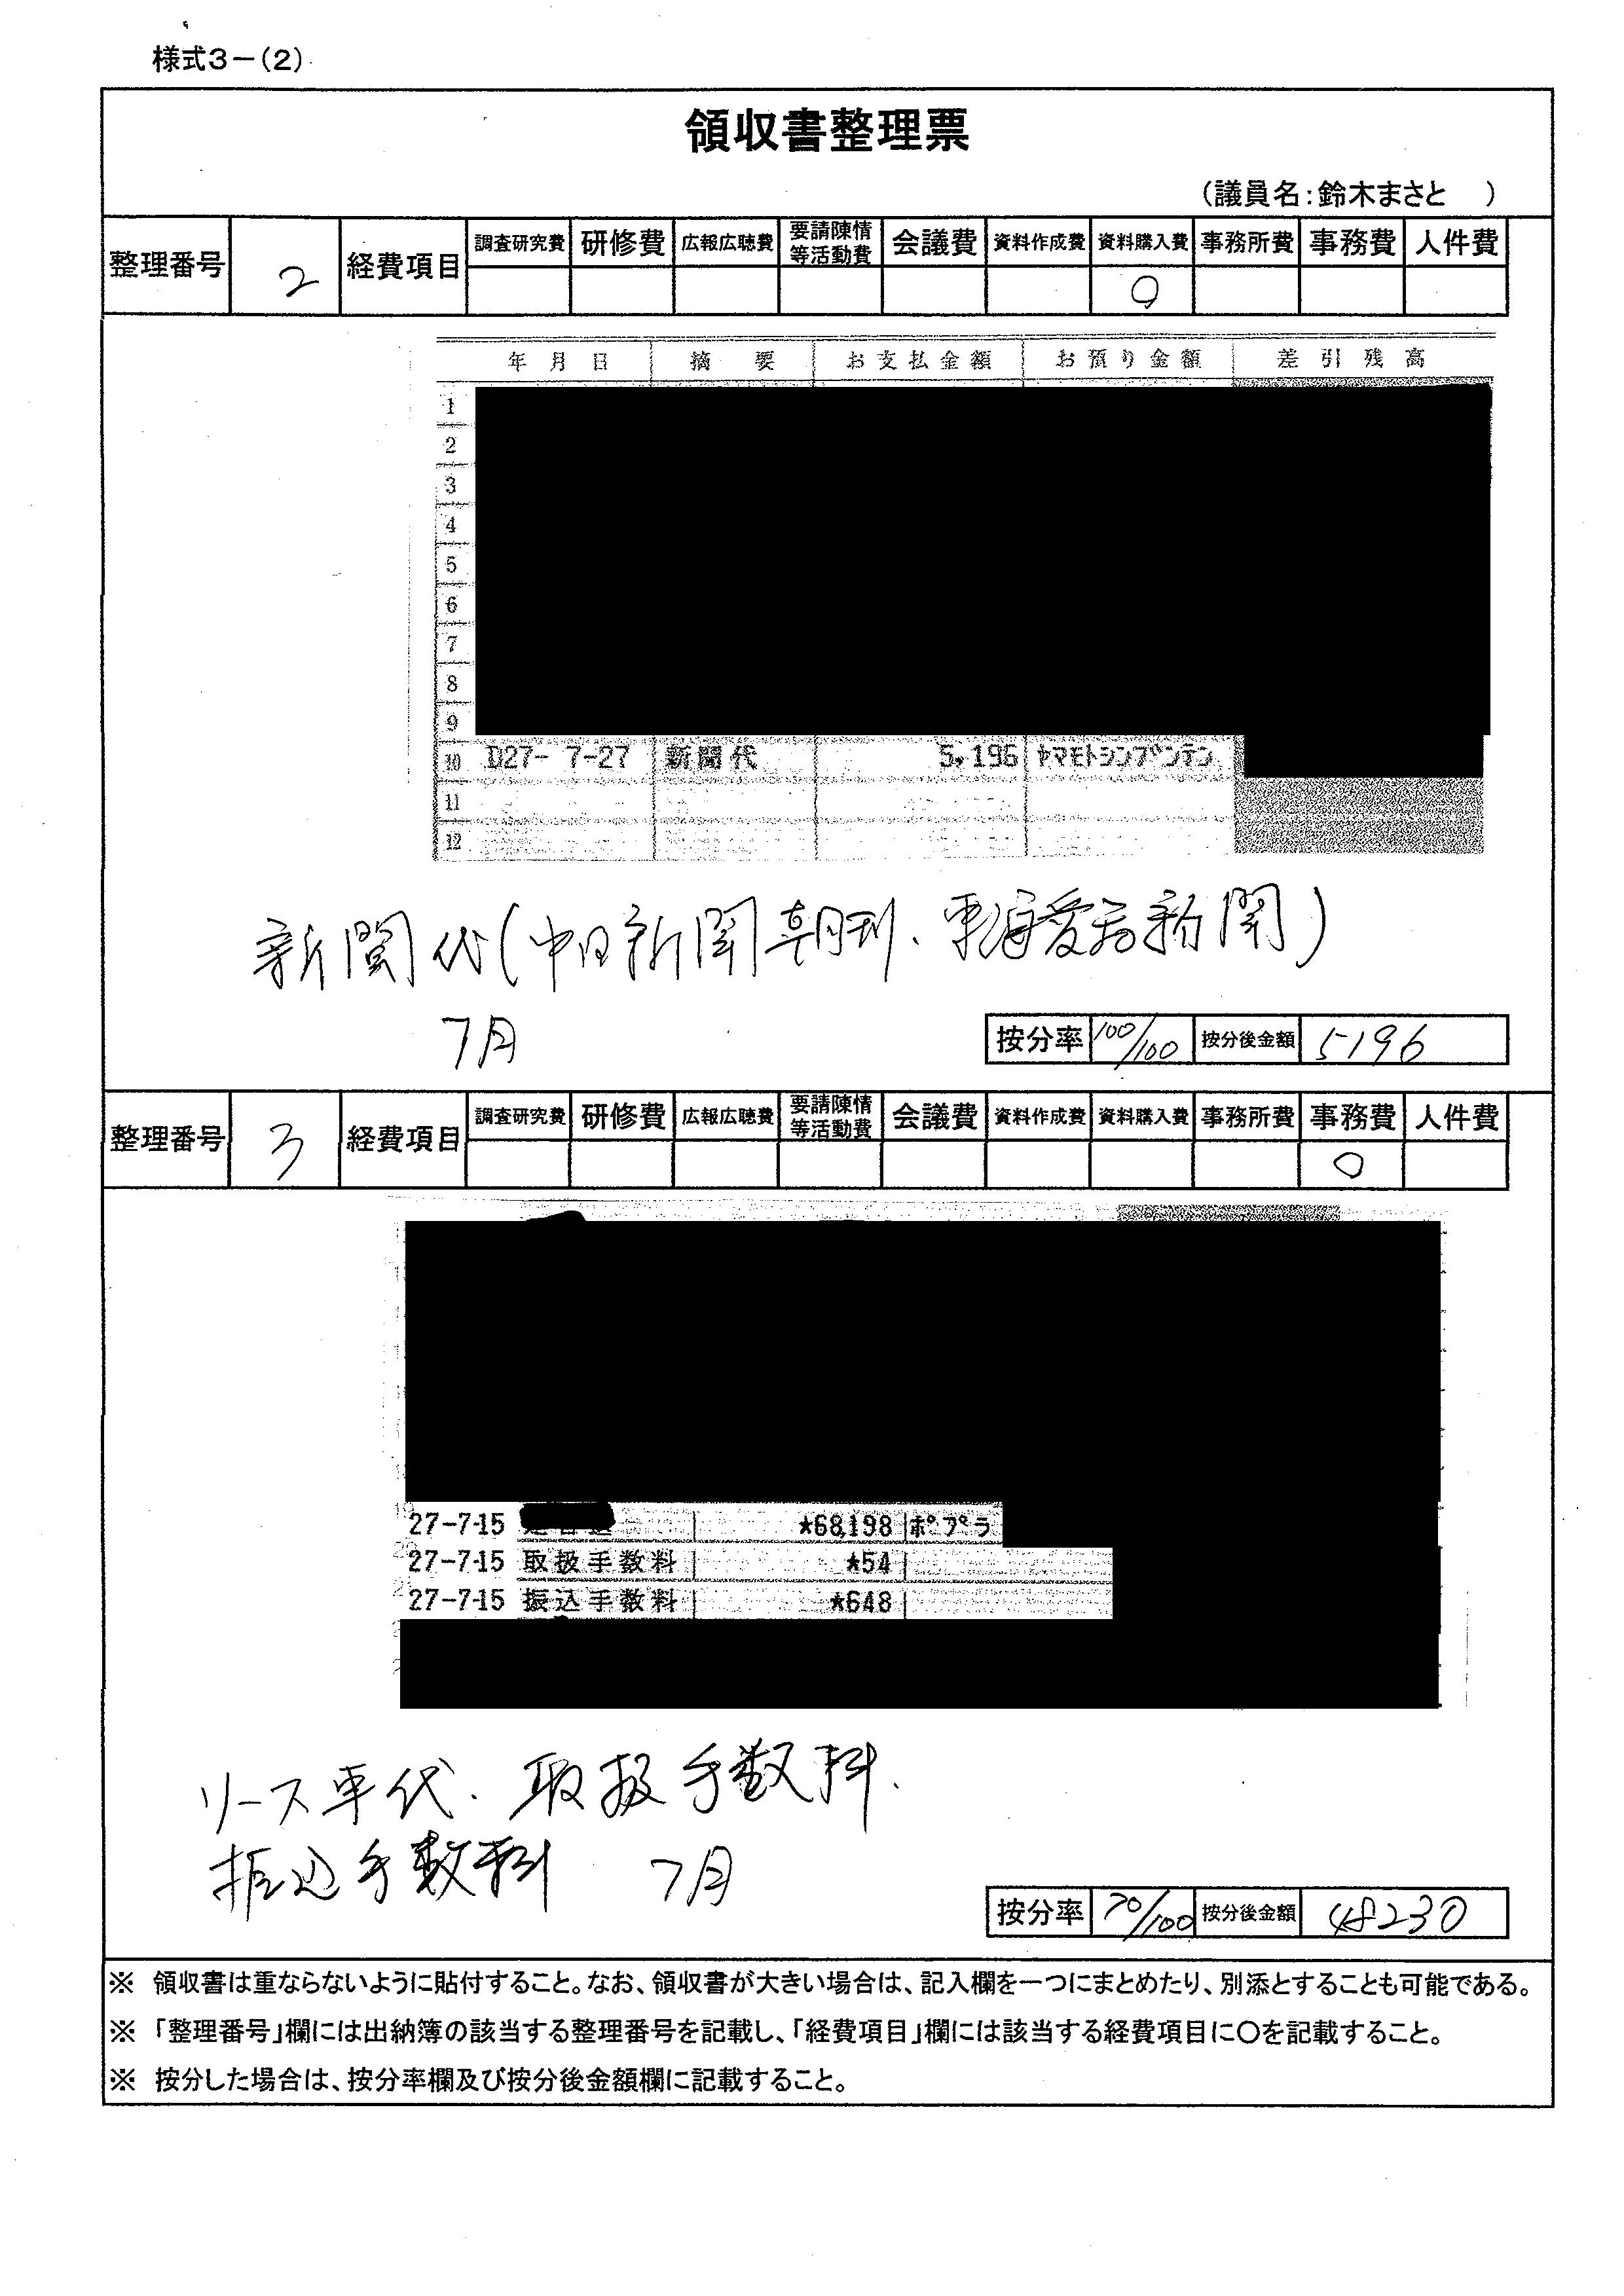 様式3-(2)
領収書整理票
(議員名:鈴木まさと )
整理番号 2 経費項目 調査研究費 研修費 広報広聴費 要請陳情等活動費 会議費 資料作成費 資料購入費 事務所費 事務費 人件費
○
年月日 摘要 お支払金額 お預り金額 差引残高
1
2
3
4
5
6
7
8
9
10 D27- 7-27 新聞代 5,196 ヤマモトシンブンテン
11
12
新聞代(中日新聞朝刊、東海愛知新聞)
7月
按分率 100/100 按分後金額 5196
整理番号 3 経費項目 調査研究費 研修費 広報広聴費 要請陳情等活動費 会議費 資料作成費 資料購入費 事務所費 事務費 人件費
○
27-7-15 ★68,198 ポプラ
27-7-15 取扱手数料 ★54
27-7-15 振込手数料 ★648
リース車代、取扱手数料、
振込手数料 7月
按分率 70/100 按分後金額 48230
※ 領収書は重ならないように貼付すること。なお、領収書が大きい場合は、記入欄を一つにまとめたり、別添とすることも可能である。
※ 「整理番号」欄には出納簿の該当する整理番号を記載し、「経費項目」欄には該当する経費項目に○を記載すること。
※ 按分した場合は、按分率欄及び按分後金額欄に記載すること。